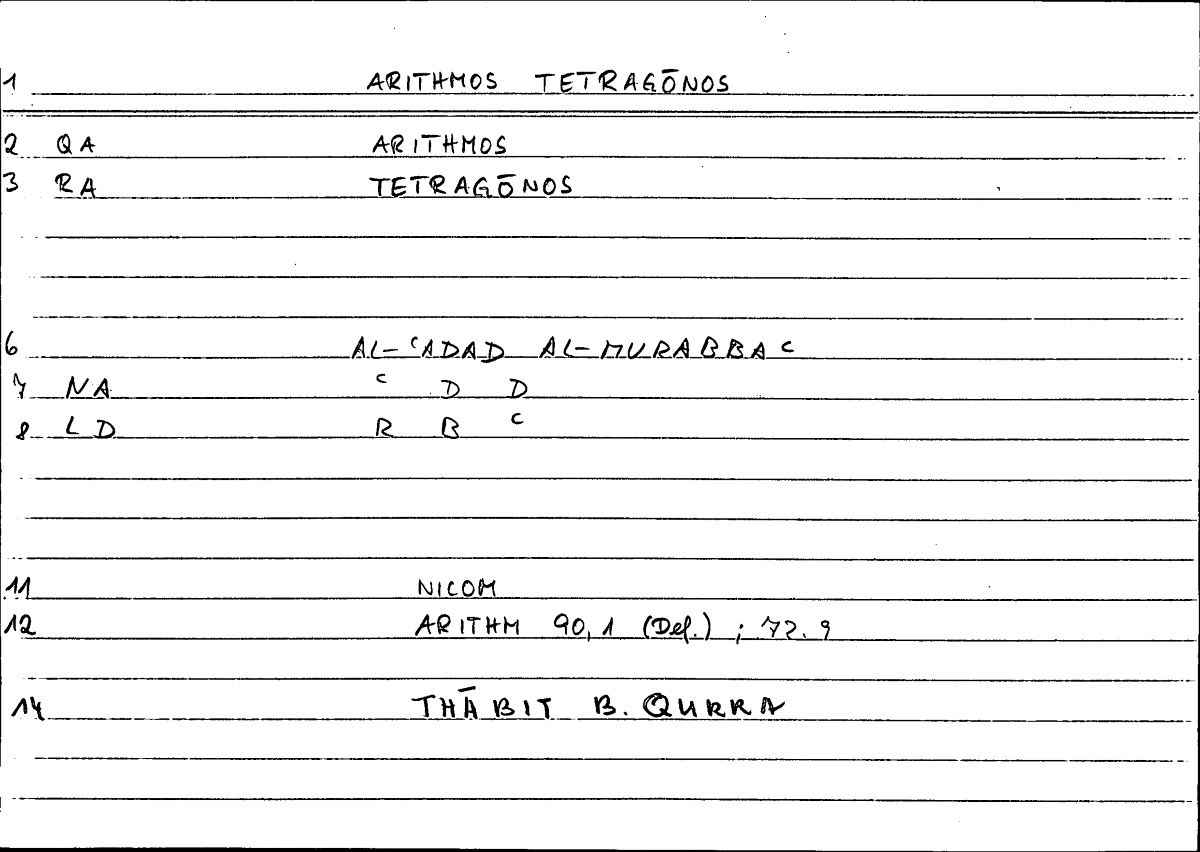 1 ARITHMOS TETRAGŌNOS
2 QA ARITHMOS
3 RA TETRAGŌNOS
6 AL-ʿADAD AL-MURABBAʿ
7 NA ʿ D D
8 LD R B ʿ
11 NICOM
12 ARITHM 90,1 (Def.) ; 72.9
14 THĀBIT B. QURRA